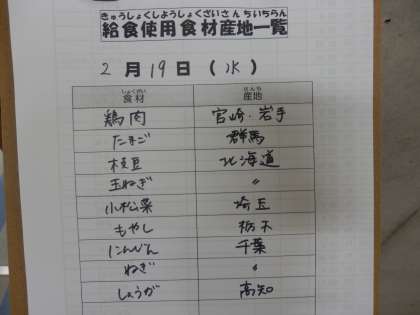 きゅうしょくしようしょくざいさんちいちらん
給食使用食材産地一覧
2月19日(水)
しょくざい さんち
食材 産地
鶏肉 宮崎・岩手
たまご 群馬
枝豆 北海道
玉ねぎ 〃
小松菜 埼玉
もやし 栃木
にんじん 千葉
ねぎ 〃
しょうが 高知